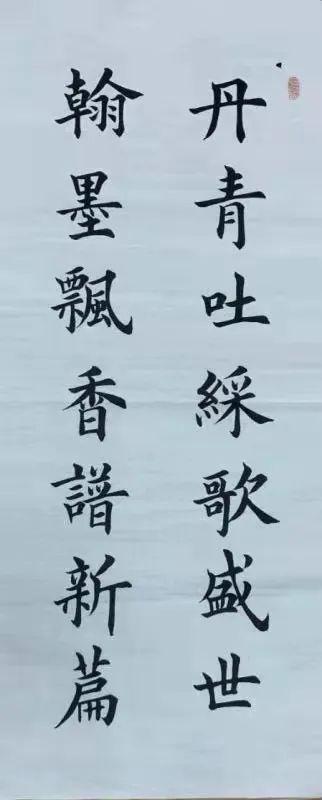 丹青吐綵歌盛世
翰墨飄香譜新篇